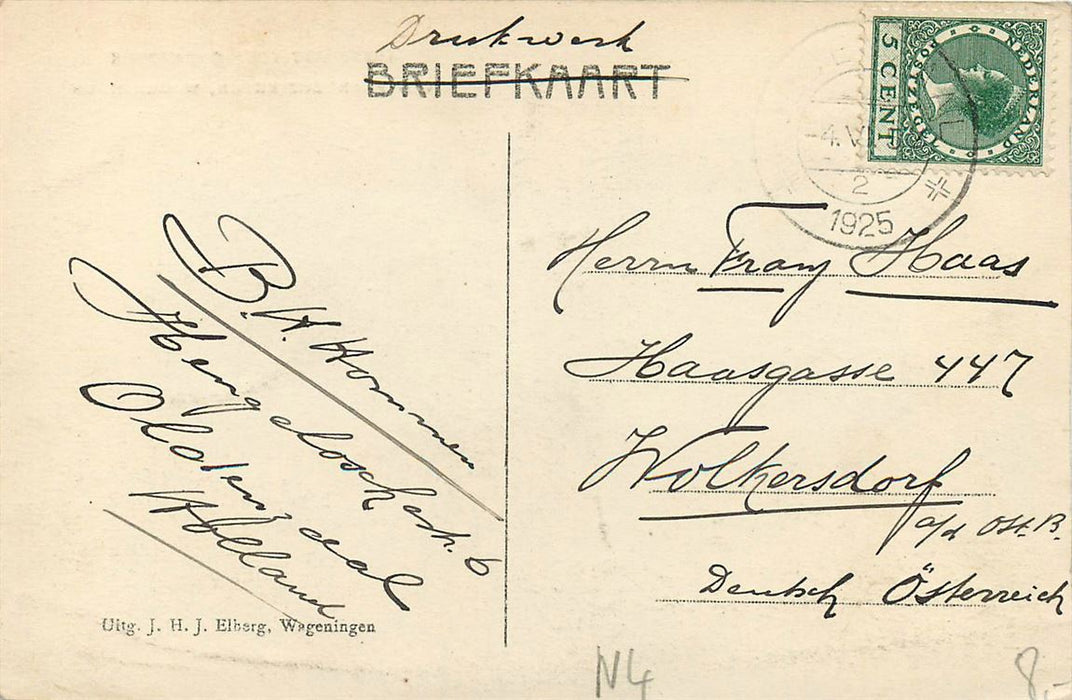 Drukwerk
BRIEFKAART
NEDERLAND
POSTZEGEL
5 CENT
-4.V
2
1925
Herrn Franz Haas
Haasgasse 447
Wolkersdorf
a/d Ost. B.
Deutsch Österreich
B. H. Hommen
Hengeloschestr. 6
Oldenzaal
Holland
Uitg. J. H. J. Elberg, Wageningen
N4
8-